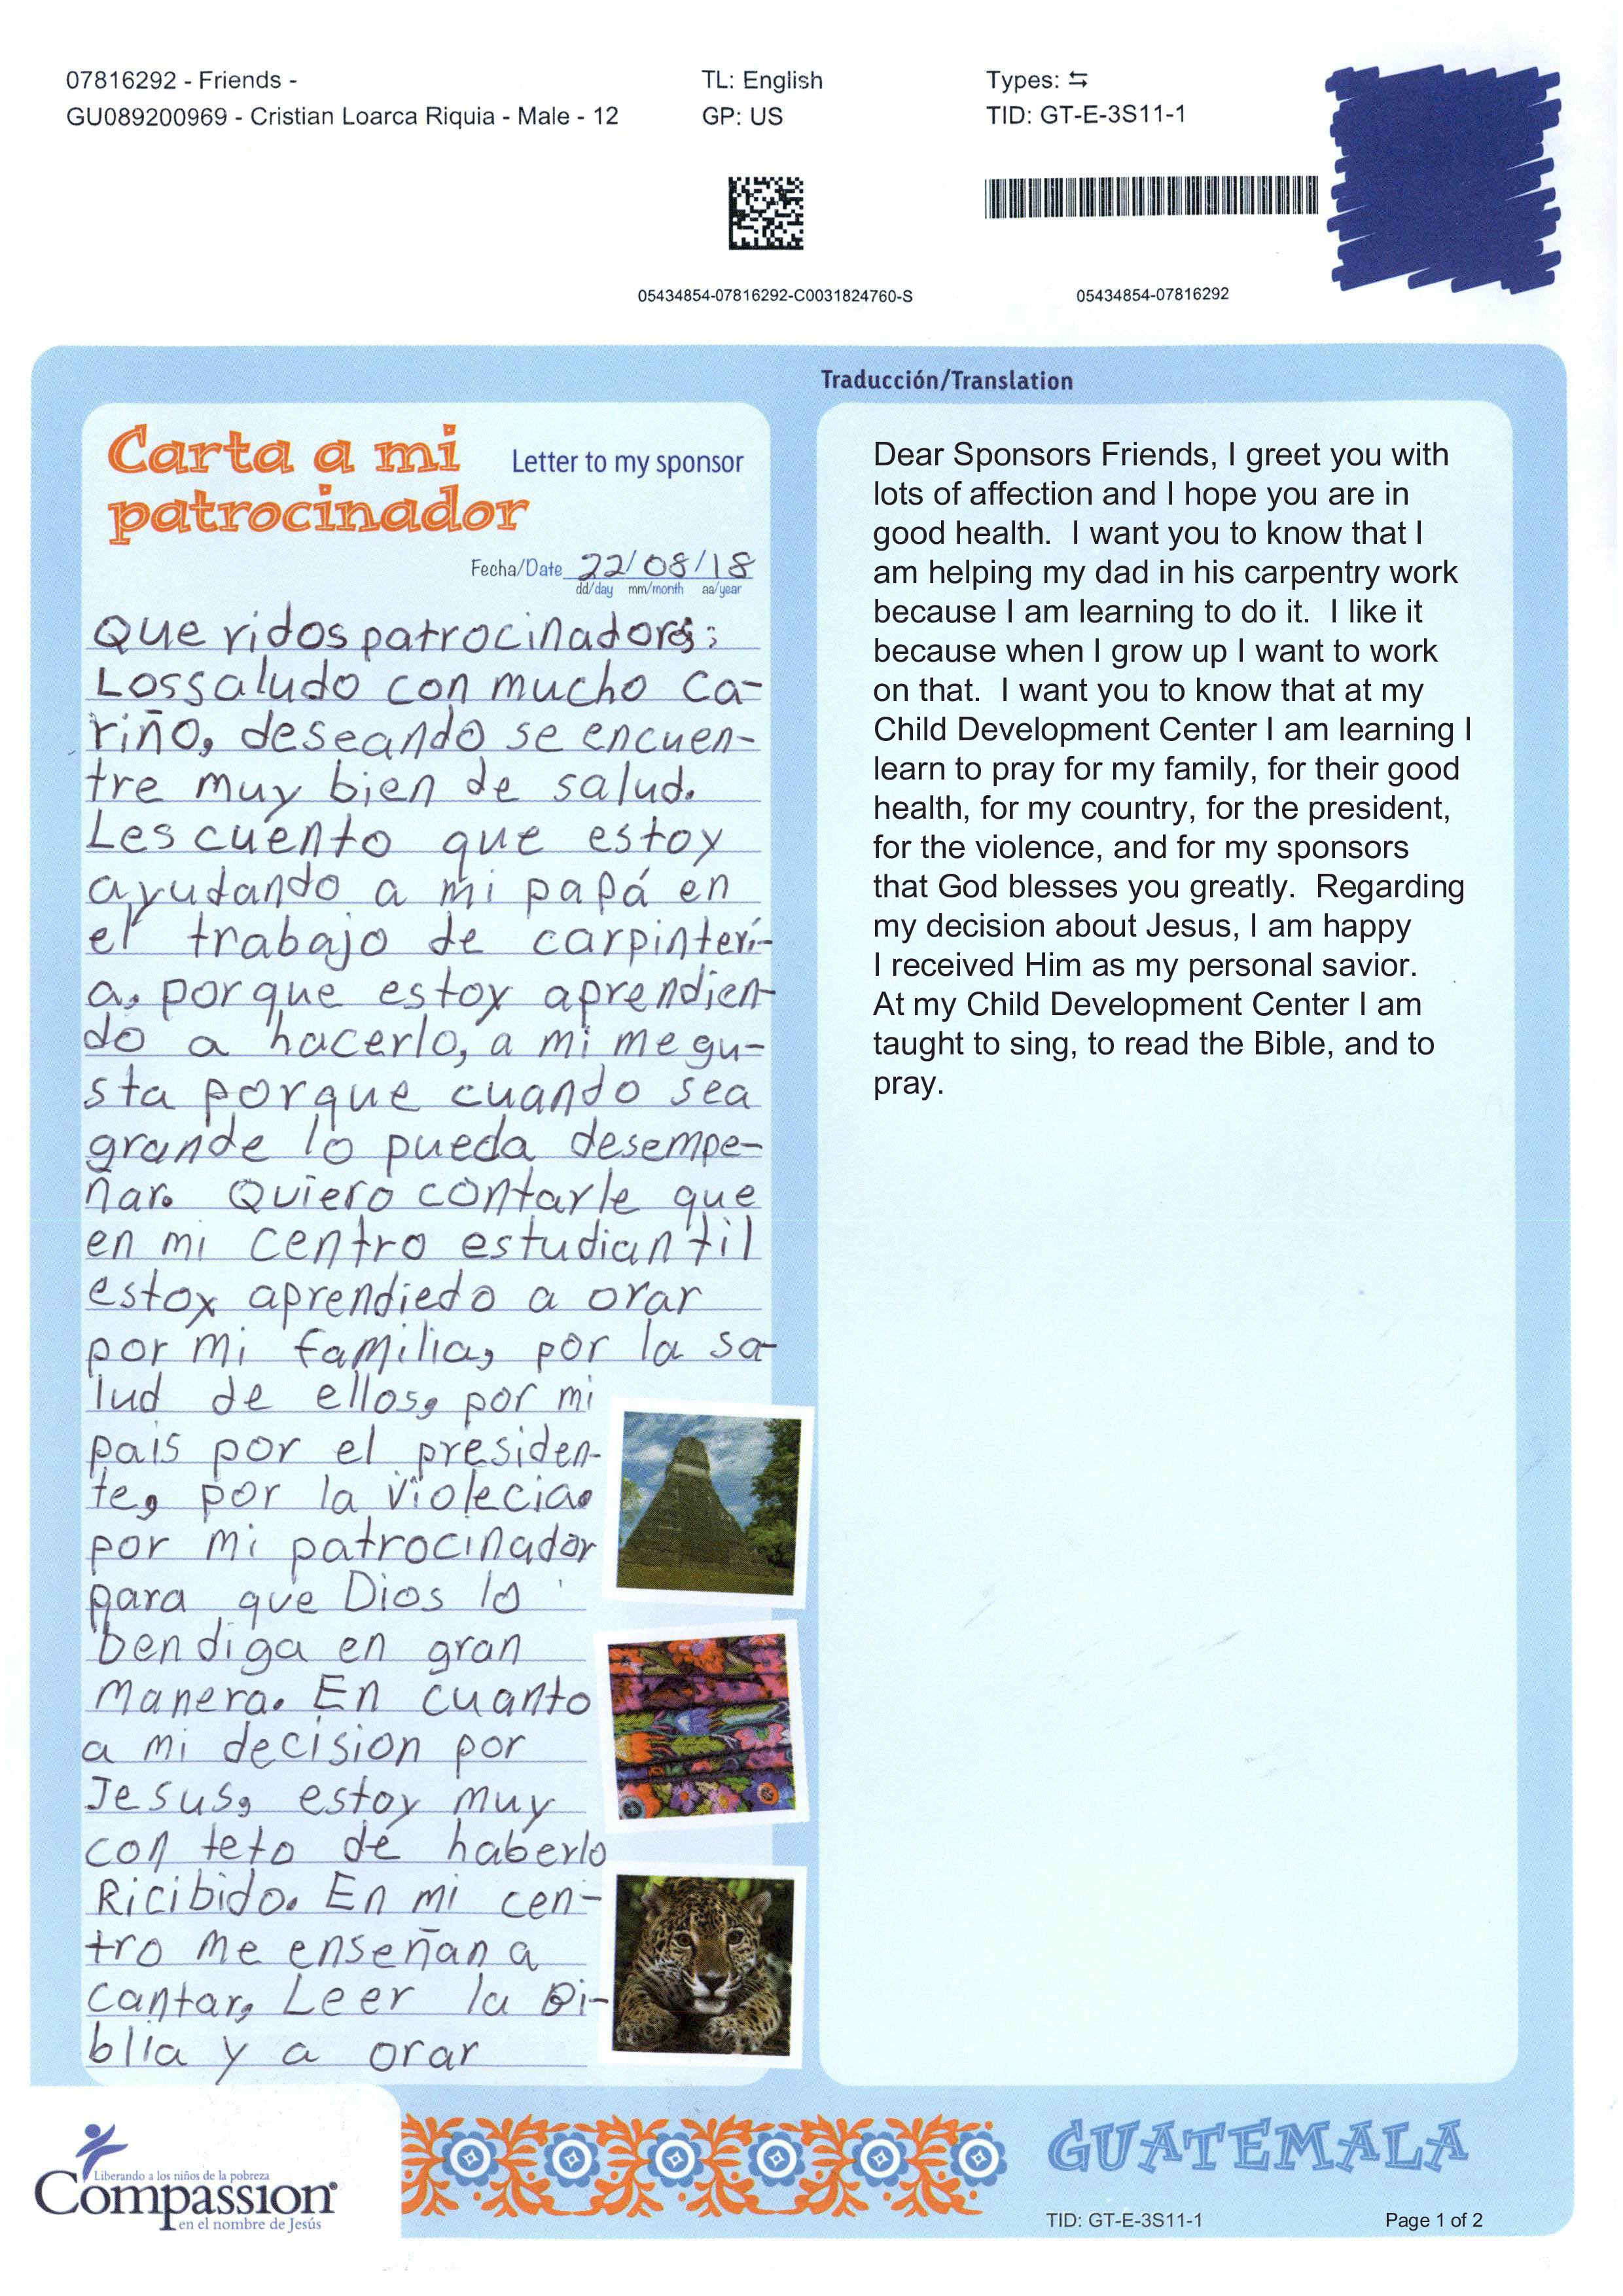 07816292 - Friends -
GU089200969 - Cristian Loarca Riquia - Male - 12
TL: English
GP: US
Types: ⇆
TID: GT-E-3S11-1
05434854-07816292-C0031824760-S
05434854-07816292
Carta a mi
patrocinador
Letter to my sponsor
Fecha/Date 22/08/18
dd/day mm/month aa/year
Queridos patrocinadores:
Los saludo con mucho ca-
riño, deseando se encuen-
tre muy bien de salud.
Les cuento que estoy
ayudando a mi papá en
el trabajo de carpinterí-
a, porque estoy aprendien-
do a hacerlo, a mi me gu-
sta porque cuando sea
grande lo pueda desempe-
ñar. Quiero contarle que
en mi centro estudiantil
estoy aprendiedo a orar
por mi familia, por la sa-
lud de ellos, por mi
pais por el presiden-
te, por la violecia.
por mi patrocinador
para que Dios lo
bendiga en gran
manera. En cuanto
a mi decision por
Jesus, estoy muy
con teto de haberlo
Ricibido. En mi cen-
tro me enseñan a
cantar, Leer la Bi-
blia y a orar
Traducción/Translation
Dear Sponsors Friends, I greet you with
lots of affection and I hope you are in
good health. I want you to know that I
am helping my dad in his carpentry work
because I am learning to do it. I like it
because when I grow up I want to work
on that. I want you to know that at my
Child Development Center I am learning I
learn to pray for my family, for their good
health, for my country, for the president,
for the violence, and for my sponsors
that God blesses you greatly. Regarding
my decision about Jesus, I am happy
I received Him as my personal savior.
At my Child Development Center I am
taught to sing, to read the Bible, and to
pray.
Liberando a los niños de la pobreza
Compassion
en el nombre de Jesús
GUATEMALA
TID: GT-E-3S11-1
Page 1 of 2